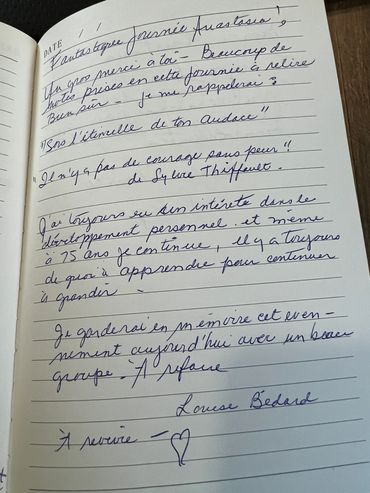 DATE / /
Fantastique journée Anastasia!
Un gros merci à toi - Beaucoup de
notes prises en cette journée à relire
Bien sûr - Je me rappelerai:
"Sois l'étincelle de ton Audace"
"Il n'y a pas de courage sans peur"!
de Sylvie Thiffault.
J'ai toujours eu un intérête dans le
développement personnel et même
à 75 ans je continue, il y a toujours
de quoi à apprendre pour continuer
à grandir -
Je garderai en mémoire cet even-
nement aujourd'hui avec un beau
groupe. À refaire
Louise Bédard
À revivre - ♡